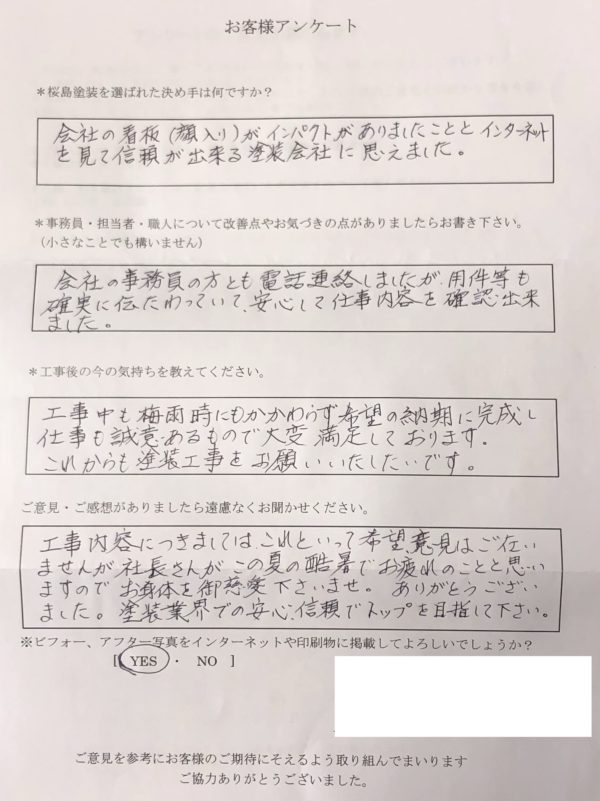 お客様アンケート
＊桜島塗装を選ばれた決め手は何ですか？
会社の看板(顔入り)がインパクトがありましたこととインターネット
を見て信頼が出来る塗装会社に思えました。
＊事務員・担当者・職人について改善点やお気づきの点がありましたらお書き下さい。
（小さなことでも構いません）
会社の事務員の方とも電話連絡しましたが、用件等も
確実に伝たわっていて、安心して仕事内容を確認出来
ました。
＊工事後の今の気持ちを教えてください。
工事中も梅雨時にもかかわらず希望の納期に完成し
仕事も誠意あるもので大変満足しております。
これからも塗装工事をお願いいたしたいです。
ご意見・ご感想がありましたら遠慮なくお聞かせください。
工事内容につきましては、これといって希望、意見はございい
ませんが、社長さんがこの夏の酷暑でお疲れのことと思い
ますのでお身体を御慈愛下さいませ。ありがとうござい
ました。塗装業界での安心、信頼でトップを目指して下さい。
※ビフォー、アフター写真をインターネットや印刷物に掲載してよろしいでしょうか？
[ YES ・ NO ]
ご意見を参考にお客様のご期待にそえるよう取り組んでまいります
ご協力ありがとうございました。